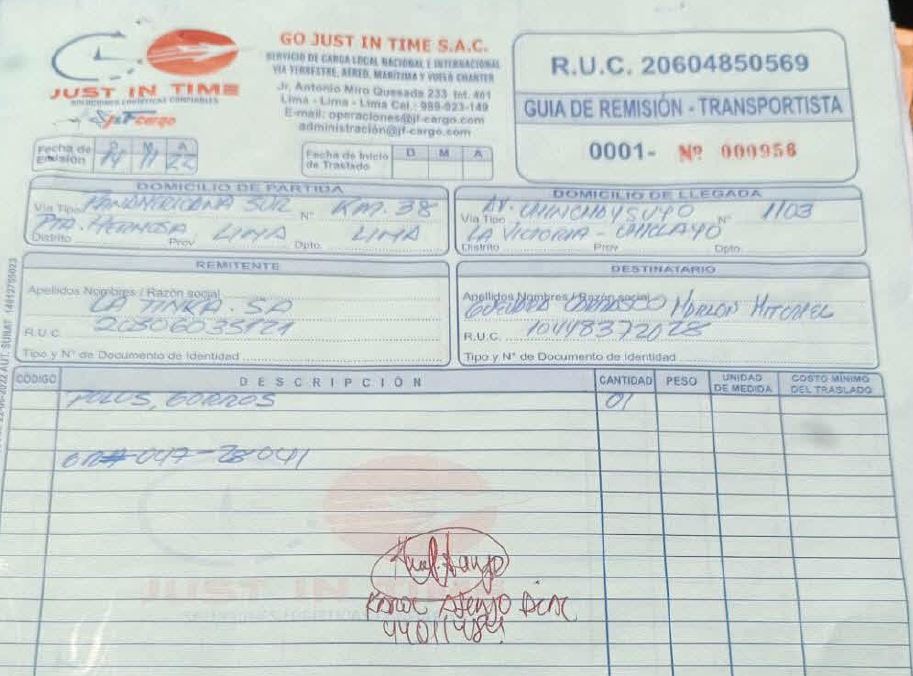 JUST IN TIME
SOLUCIONES LOGISTICAS CONFIABLES
JF cargo
GO JUST IN TIME S.A.C.
SERVICIO DE CARGA LOCAL NACIONAL E INTERNACIONAL
VIA TERRESTRE, AEREO, MARITIMA Y VUELO CHARTER
Jr. Antonio Miro Quesada 233 Int. 461
Lima - Lima - Lima Cel.: 989-023-149
E-mail: operaciones@jf-cargo.com
administración@jf-cargo.com
R.U.C. 20604850569
GUIA DE REMISIÓN - TRANSPORTISTA
0001- Nº 000958
Fecha de Emisión D M A
14 11 22
Fecha de Inicio de Traslado D M A
DOMICILIO DE PARTIDA
Via Tipo PANAMERICANA SUR Nº KM. 38
PTA. HERMOSA LIMA LIMA
Distrito Prov Dpto.
DOMICILIO DE LLEGADA
Via Tipo AV. CHINCHAYSUYO Nº 1103
LA VICTORIA - CHICLAYO
Distrito Prov Dpto.
REMITENTE
Apellidos Nombres / Razón social
LA TINKA. SA
R.U.C.
Tipo y Nº de Documento de Identidad
DESTINATARIO
Apellidos Nombres / Razón social
CARRASCO MARLON MITCHEL
R.U.C. 10448372028
Tipo y Nº de Documento de Identidad
CÓDIGO DESCRIPCIÓN CANTIDAD PESO UNIDAD DE MEDIDA COSTO MÍNIMO DEL TRASLADO
POLOS, GORROS 01
047-28041
JUST IN TIME